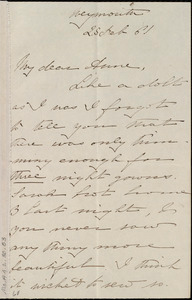 Weymouth
25 Feb 51
My dear Anne,
Like a dolt
as I was I forgot
to tell you that
there was only trim
ming enough for
three night gowns.
Sarah got home
last night, &
you never saw
any thing more
beautiful I think
it wicked to sew